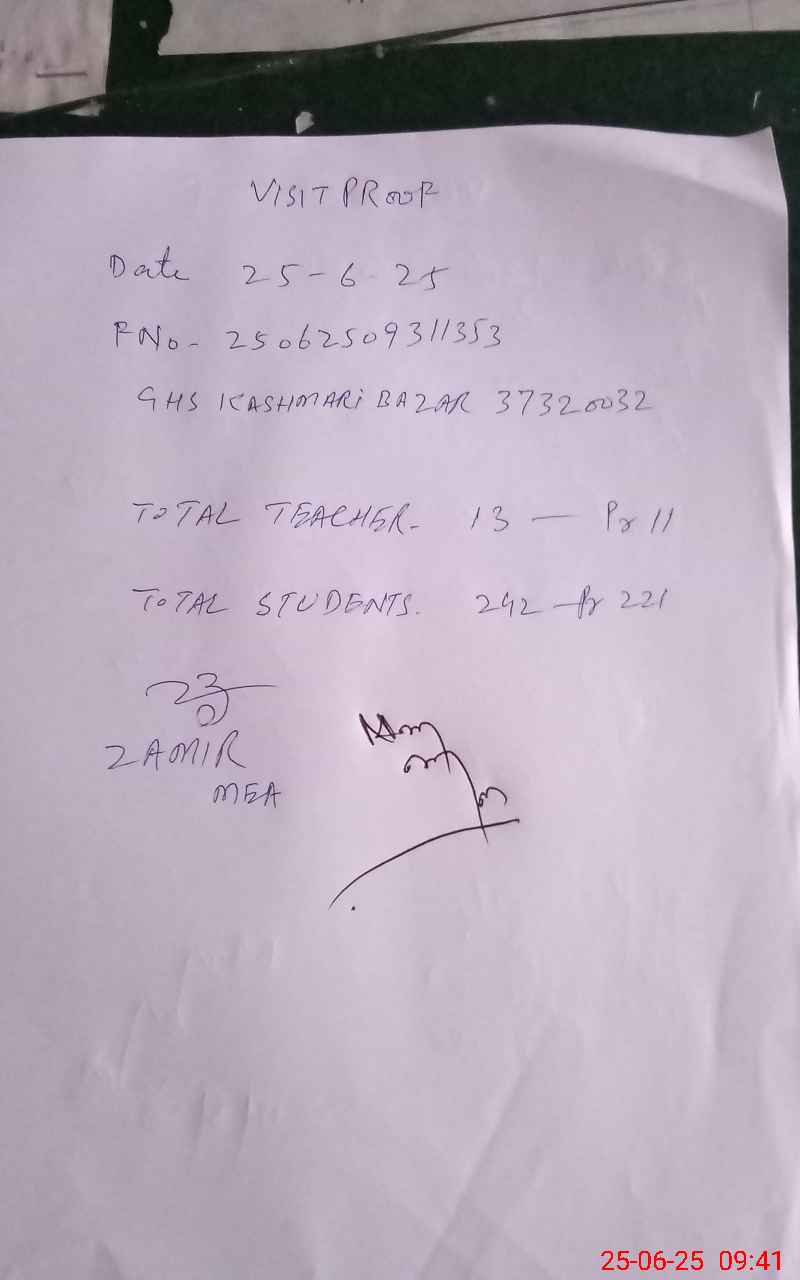 VISIT PROOF
Date 25-6-25
FNo- 25062509311353
GHS KASHMARI BAZAR 37320032
TOTAL TEACHER- 13 — Pr 11
TOTAL STUDENTS. 242 — Pr 221
ZAMIR
MEA
25-06-25 09:41